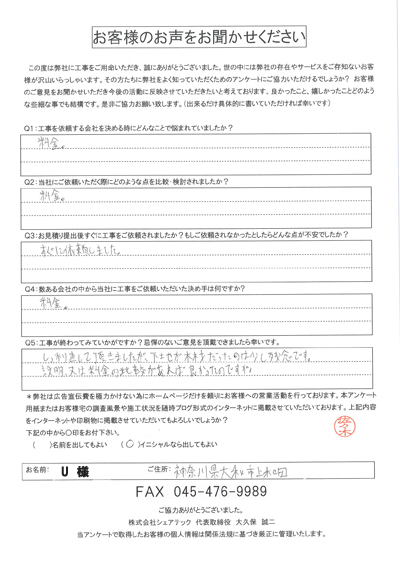 お客様のお声をお聞かせください
この度は弊社に工事をご用命いただき、誠にありがとうございました。世の中には弊社の存在やサービスをご存知ないお客
様が沢山いらっしゃいます。その方たちに弊社をよく知っていただくためのアンケートにご協力いただけるでしょうか? お客様
のご意見をお聞かせいただき今後の活動に反映させていただきたいと考えております。良かったこと、嬉しかったことどのよう
な些細な事でも結構です。是非ご協力お願い致します。(出来るだけ具体的に書いていただければ幸いです)
Q1:工事を依頼する会社を決める時にどんなことで悩まれていましたか?
料金。
Q2:当社にご依頼いただく際にどのような点を比較・検討されましたか?
料金。
Q3:お見積り提出後すぐに工事をご依頼されましたか?もしご依頼されなかったとしたらどんな点が不安でしたか?
すぐに依頼しました。
Q4:数ある会社の中から当社に工事をご依頼いただいた決め手は何ですか?
料金。
Q5:工事が終わってみていかがですか?忌憚のないご意見を頂戴できましたら幸いです。
しっかり直して頂きましたが、下地が木材だったのは少し
説明又は料金の
*弊社は広告宣伝費を極力かけない為にホームページだけを頼りにお客様への営業活動を行っております。本アンケート
用紙またはお客様宅の調査風景や施工状況を随時ブログ形式のインターネットに掲載させていただいております。上記内容
をインターネットや印刷物に掲載させていただいてもよろしいでしょうか?
下記の中から○印をお付下さい。
( )名前を出してもよい (○)イニシャルなら出してもよい
お名前: U 様 ご住所: 神奈川県大和市上和田
FAX 045-476-9989
ご協力ありがとうございました。
株式会社シェアテック 代表取締役 大久保 誠二
当アンケートで取得したお客様の個人情報は関係法規に基づき厳正に管理いたします。